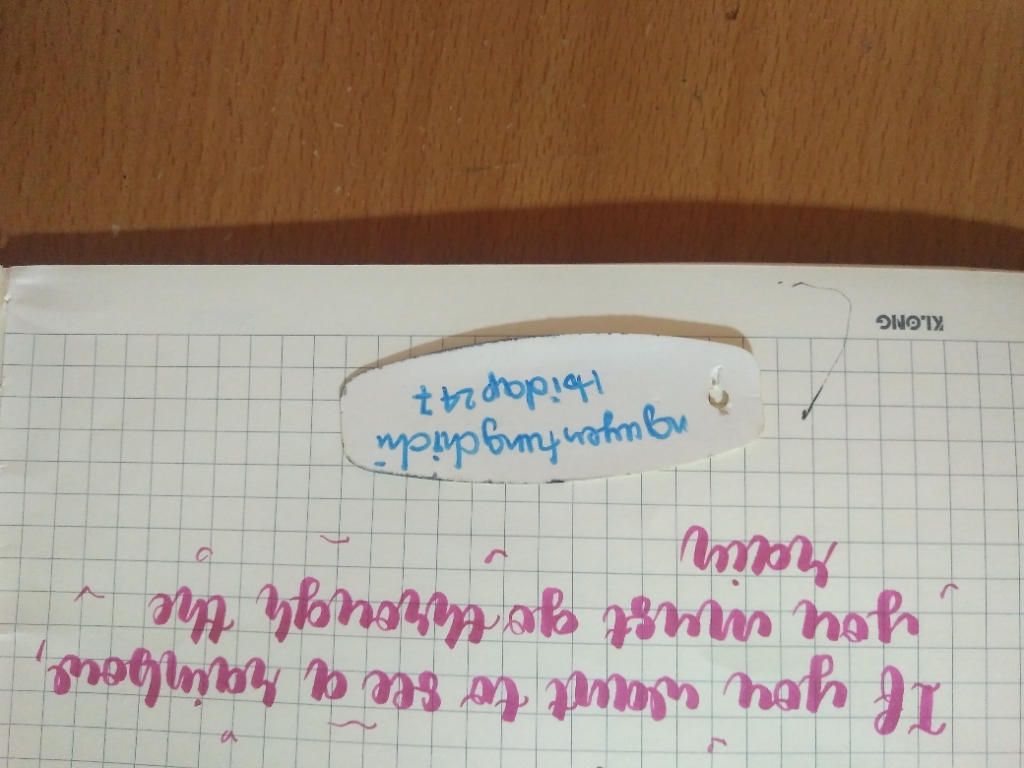 If you want to see a rainbow,
you must go through the
rain
nguyentungchichi
Hoidap247
KLONG